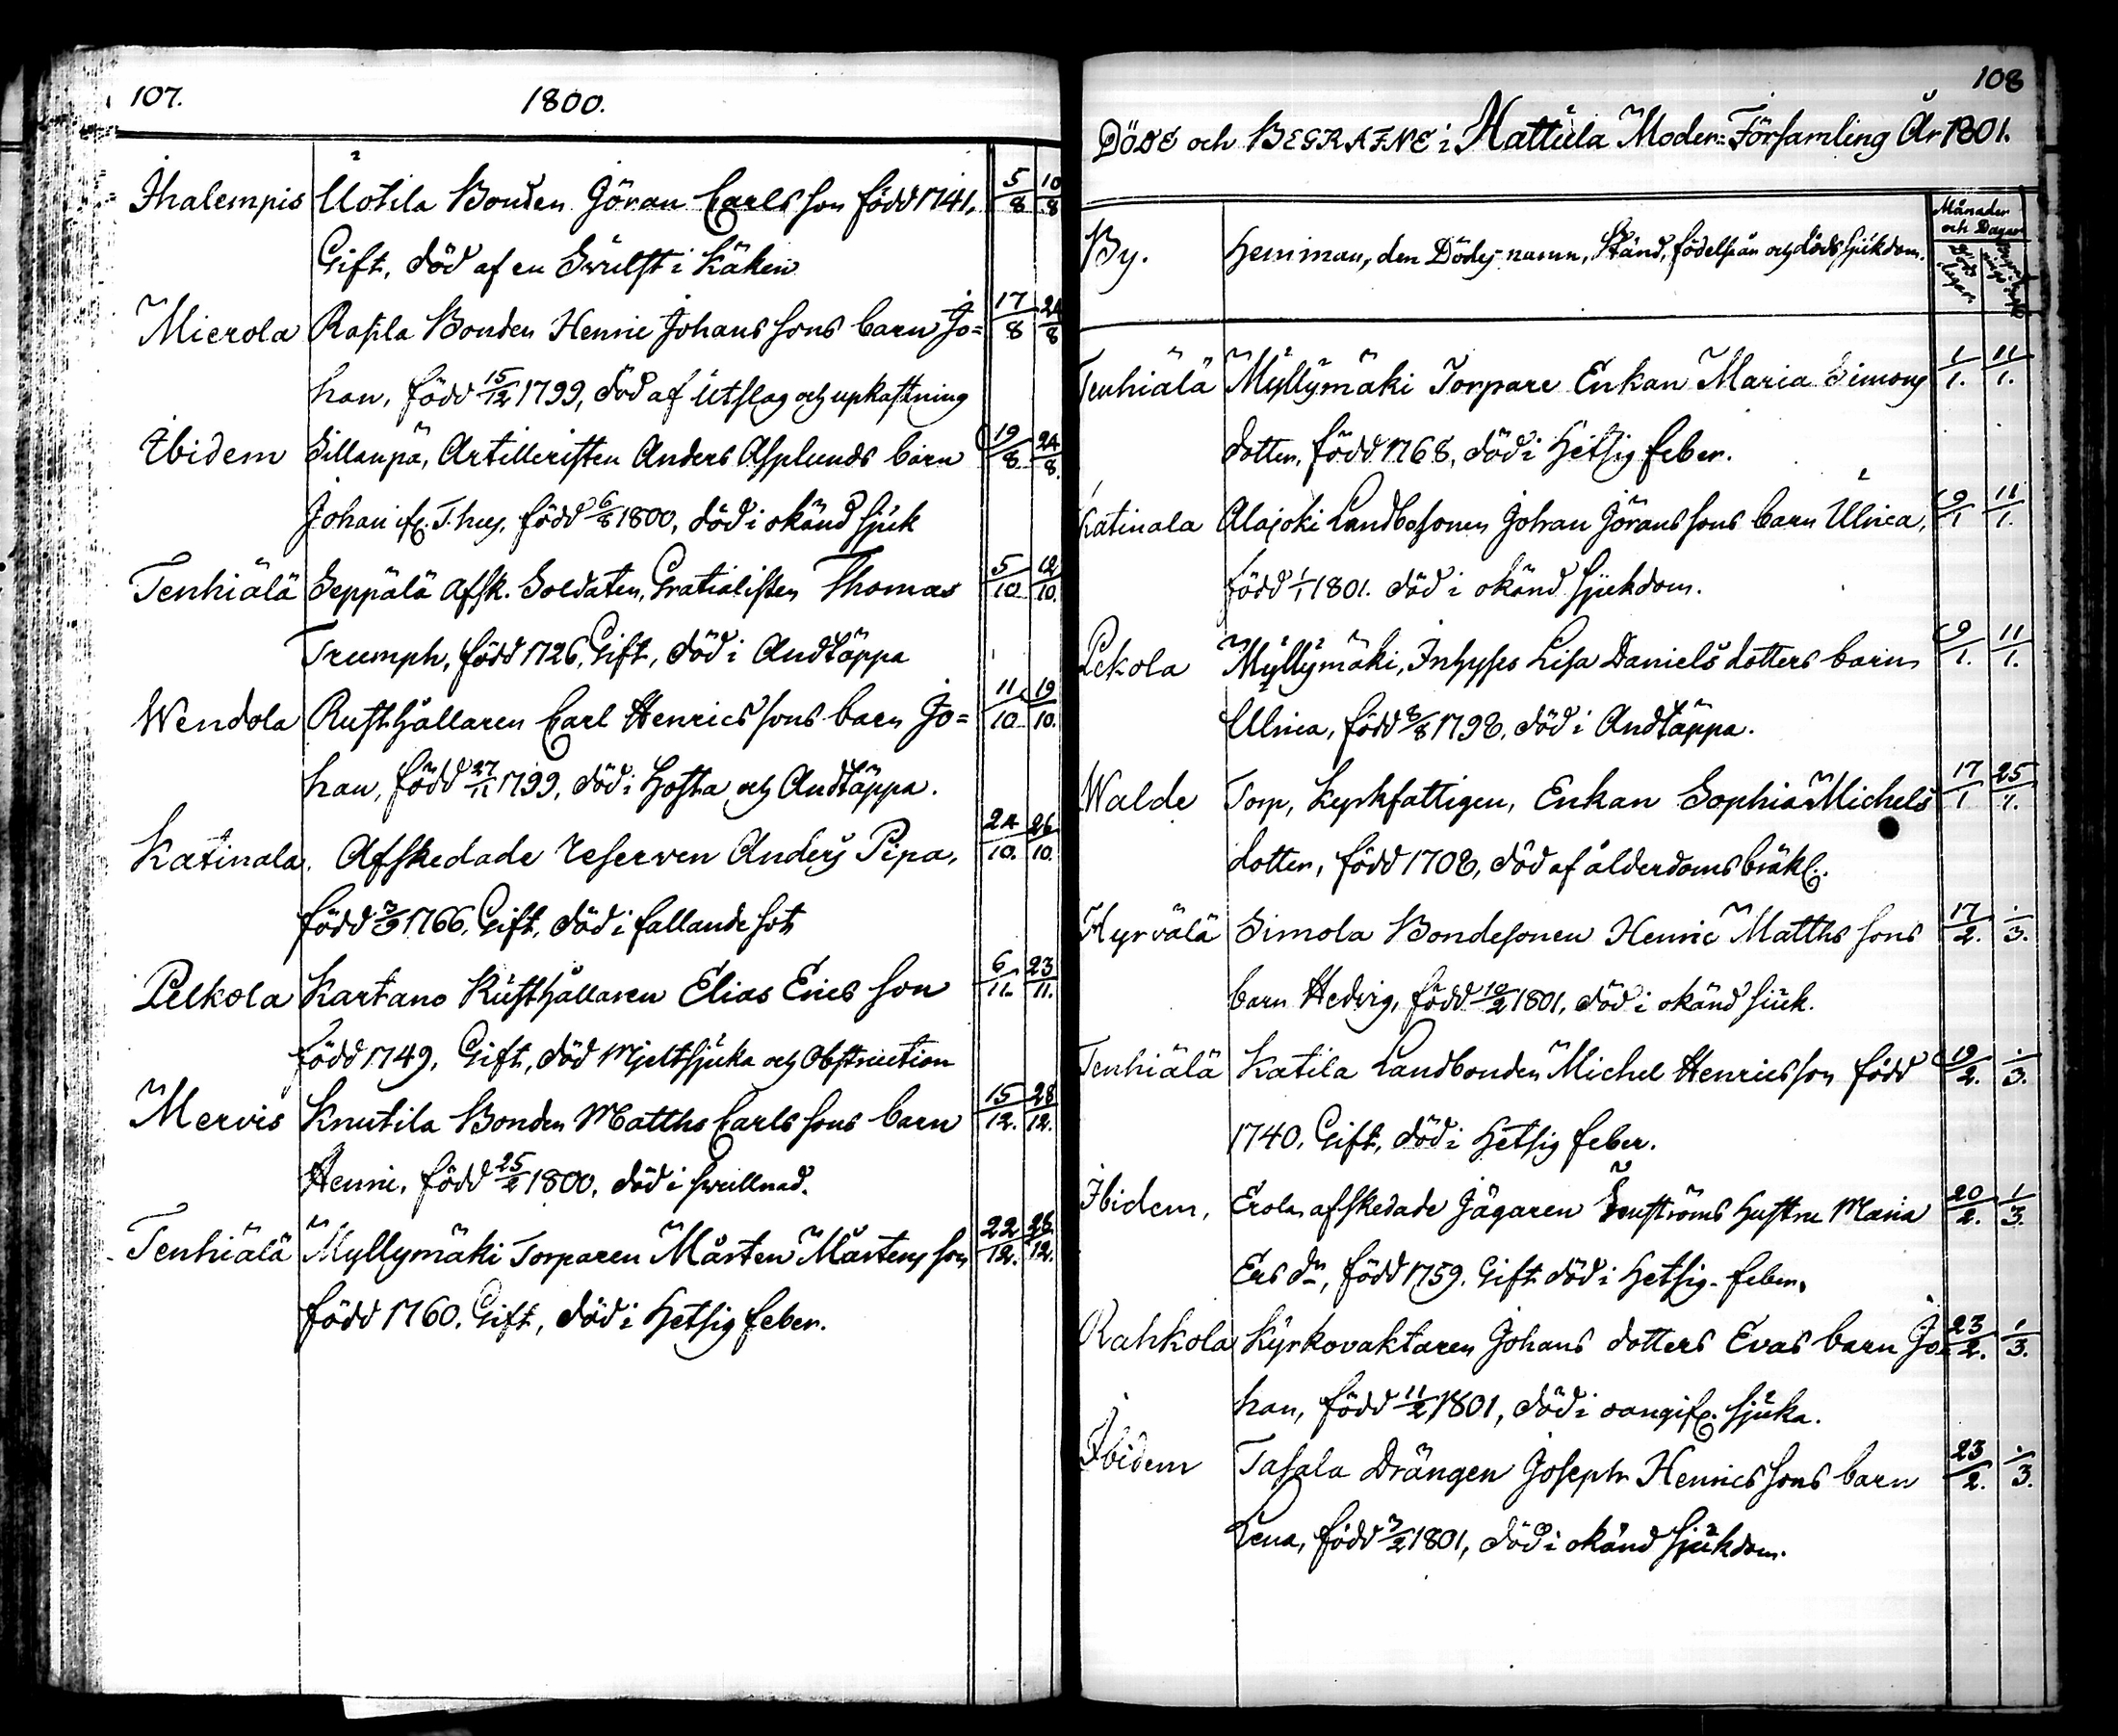 107. 1800.
Ihalempis Uotila Bonden Göran Carls son född 1741, 5/8 10/8
Gift, död af en Swulst i Käken
Mierola Rapla Bonden Henric Johans sons barn Jo= 17/8 24/8
han, född 15/12 1799, död af Utslag och upkastning
Ibidem Sillanpä, Artilleristen Anders Asplunds barn 19/8 24/8.
Johan född 6/8 1800, död i okänd sjuk
Tenhiälä Seppälä Afsk. Soldaten, Gratialisten Thomas 5/10 12/10.
Triumph, född 1726, Gift, död i Andtäppa
Wendola Rusthållaren Carl Henrics sons barn Jo= 11/10 19/10.
han, född 27/11 1799, död i Hosta och Andtäppa.
Katinala. Afskedade reserven Anders Pipa, 24/10. 26/10.
född 3/9 1766, Gift, död i fallande sot
Pelkola Kartano Rusthållaren Elias Erics son 6/11. 23/11.
född 1749, Gift, död Mjeltsjuka och Obstruction
Mervis Knutila Bonden Matths Carls sons barn 15/12. 28/12.
Henric, född 25/2 1800, död i swullnad.
Tenhiälä Myllymäki Torparen Mårten Mårtens son 22/12. 28/12.
född 1760. Gift, död i Hetsig feber.
108
DÖDE och BEGRAFNE i Hattula Moder=Församling År 1801.
By. Hemman, den Dödes namn, Stånd, födelseår och döds sjukdom. Månader och Dagar
Tenhiälä Myllymäki Torpare Enkan Maria Simons 1/1. 11/1.
dotter, född 1768, död i Hetsig feber.
Katinala Alajoki Landbosonen Johan Görans sons barn Ulrica, 9/1 11/1.
född 1/1 1801. död i okänd sjukdom.
Pekola Myllymäki, Inhyses Lisa Daniels dotters barn 9/1. 11/1.
Ulrica, född 8/8 1798, död i Andtäppa.
Walde Torp, Kyrkfattigen, Enkan Sophia Michels 17/1 25/1.
dotter, född 1708, död af ålderdoms bräkl.
Hyrvälä Simola Bondesonen Henric Matths sons 17/2. 1/3.
barn Hedvig, född 10/2 1801, död i okänd siuk.
Tenhiälä Katila Landbonden Michel Henrics son född 19/2. 1/3.
1740, Gift, död i Hetsig feber.
Ibidem, Erola afskedade Jägaren Hustru Maria 20/2. 1/3.
Ers dr, född 1759. Gift död i Hetsig feber.
Rahkola Kyrkovaktaren Johans dotters Evas barn Jo= 23/2. 1/3.
han, född 11/2 1801, död i oangifl. sjuka.
Ibidem Tasala Drängen Joseph Henrics sons barn 23/2. 1/3.
Lena, född 3/2 1801, död i okänd sjukdom.